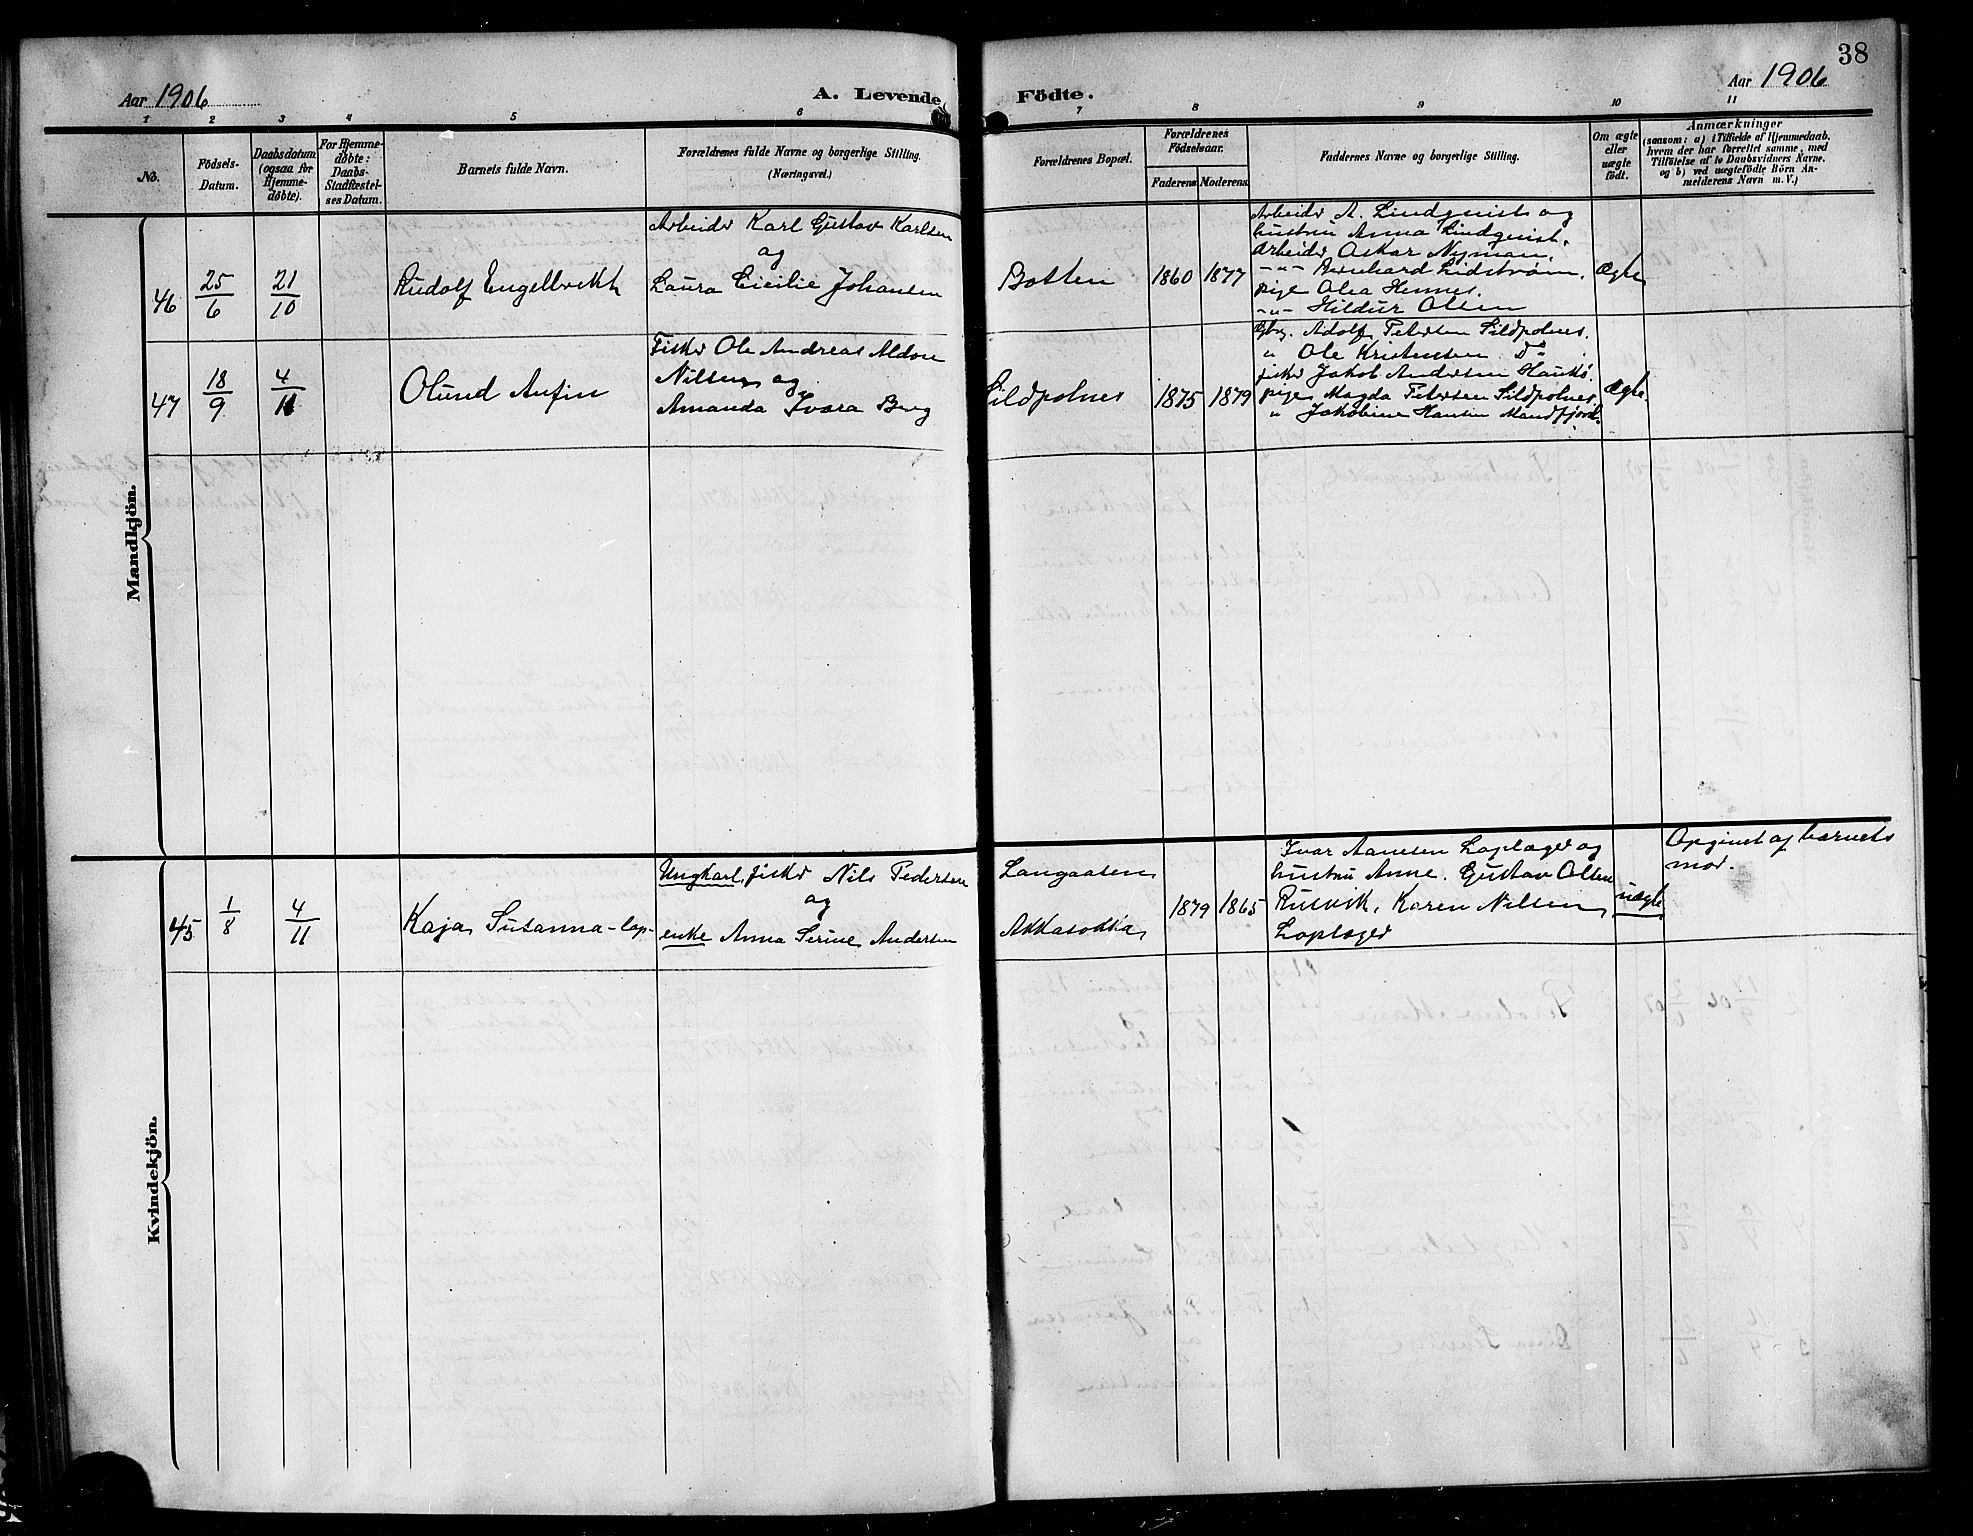 38
Aar 1906
A. Levende Födte.
Aar 1906
1 2 3 4 5 6 7 8 9 10 11
No.
Födsels-
Datum.
Daabsdatum
(ogsaa for
Hjemme-
døbte).
For Hjemme-
døbte:
Daabs-
Stadfæstel-
ses Datum.
Barnets fulde Navn.
Forældrenes fulde Navne og borgerlige Stilling.
(Næringsvei.)
Forældrenes Bopæl.
Forældrenes
Födselsaar.
Faderens. Moderens.
Faddernes Navne og borgerlige Stilling.
Om ægte
eller
uægte
födt.
Anmærkninger
(saasom: a) i Tilfælde af Hjemmedaab,
hvem der har forrettet samme, med
Tilföielse af to Daabsvidners Navne,
og b) ved uægtefödte Börn An-
melderens Navn m. V.)
Mandkjön.
46
25/6
21/10
Rudolf Engelbrekt
Arbeider Karl Gustav Karlsen
og
Laura Cicilie Johansen
Botten
1860
1877
Arbeider A. Lindquist og
hustru Anna Lindquist.
Arbeider Oskar Nyman,
-"- Bernhard Lidstrøm.
pige Olea Hennes.
-"- Hildur Olsen
Ægte
47
18/9
4/11
Olund Anfin
Fisker Ole Andreas Aldon
Nilsen og
Amanda Ivara Berg
Sildpolnes
1875
1879
Gbrg. Adolf Petersen Sildpolnes.
" Ole Kristensen Do.
fisker Jakob Andersen Haukø.
pige Magda Petersen Sildpolnes.
" Jakobine Hansen Mandfjord.
Ægte
Kvindekjön.
45
1/8
4/11
Kaja Susanna - lap-
Ungkarl, fisker Nils Pedersen
og
enke Anna Serine Andersen
Langaasen
Akkasokka
1879
1865
Ivar Aanesen Loplager og
hustru Anne. Gustav Olsen
Rusvik, Karen Nilsen
Loplager
uægte
Opgivet af barnets
mor.